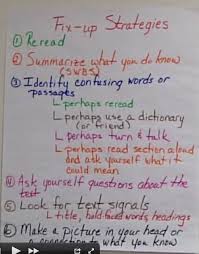 Fix-up Strategies
① Reread
② Summarize what you do know
(SWBS)
③ Identify confusing words or
passages
↳ perhaps reread
↳ perhaps use a dictionary
(or friend)
↳ perhaps turn & talk
↳ perhaps read section aloud
and ask yourself what it
could mean
④ Ask yourself questions about the
text
⑤ Look for text signals
↳ title, bold faced words, headings
⑥ Make a picture in your head or
a connection to what you know